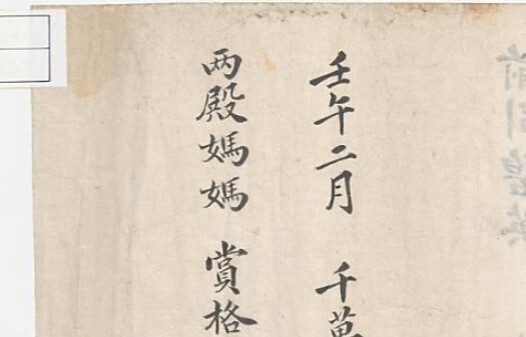 壬午二月 千萬
両殿媽媽 賞格